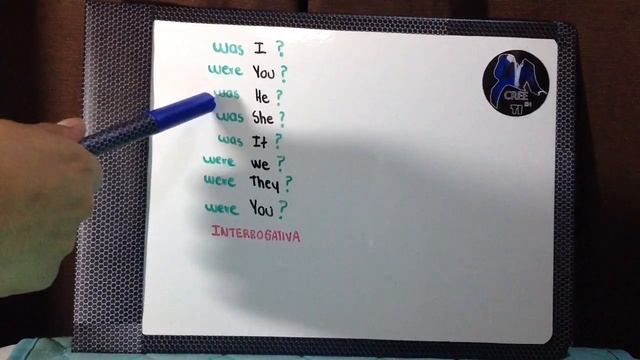 was I ?
were You ?
was He ?
was She ?
was It ?
were we ?
were They ?
were You ?
INTERROGATIVA
CREE
EN
TI